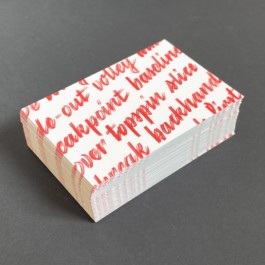 le-out volley
eakpoint baseline
over topspin slice
break backhand